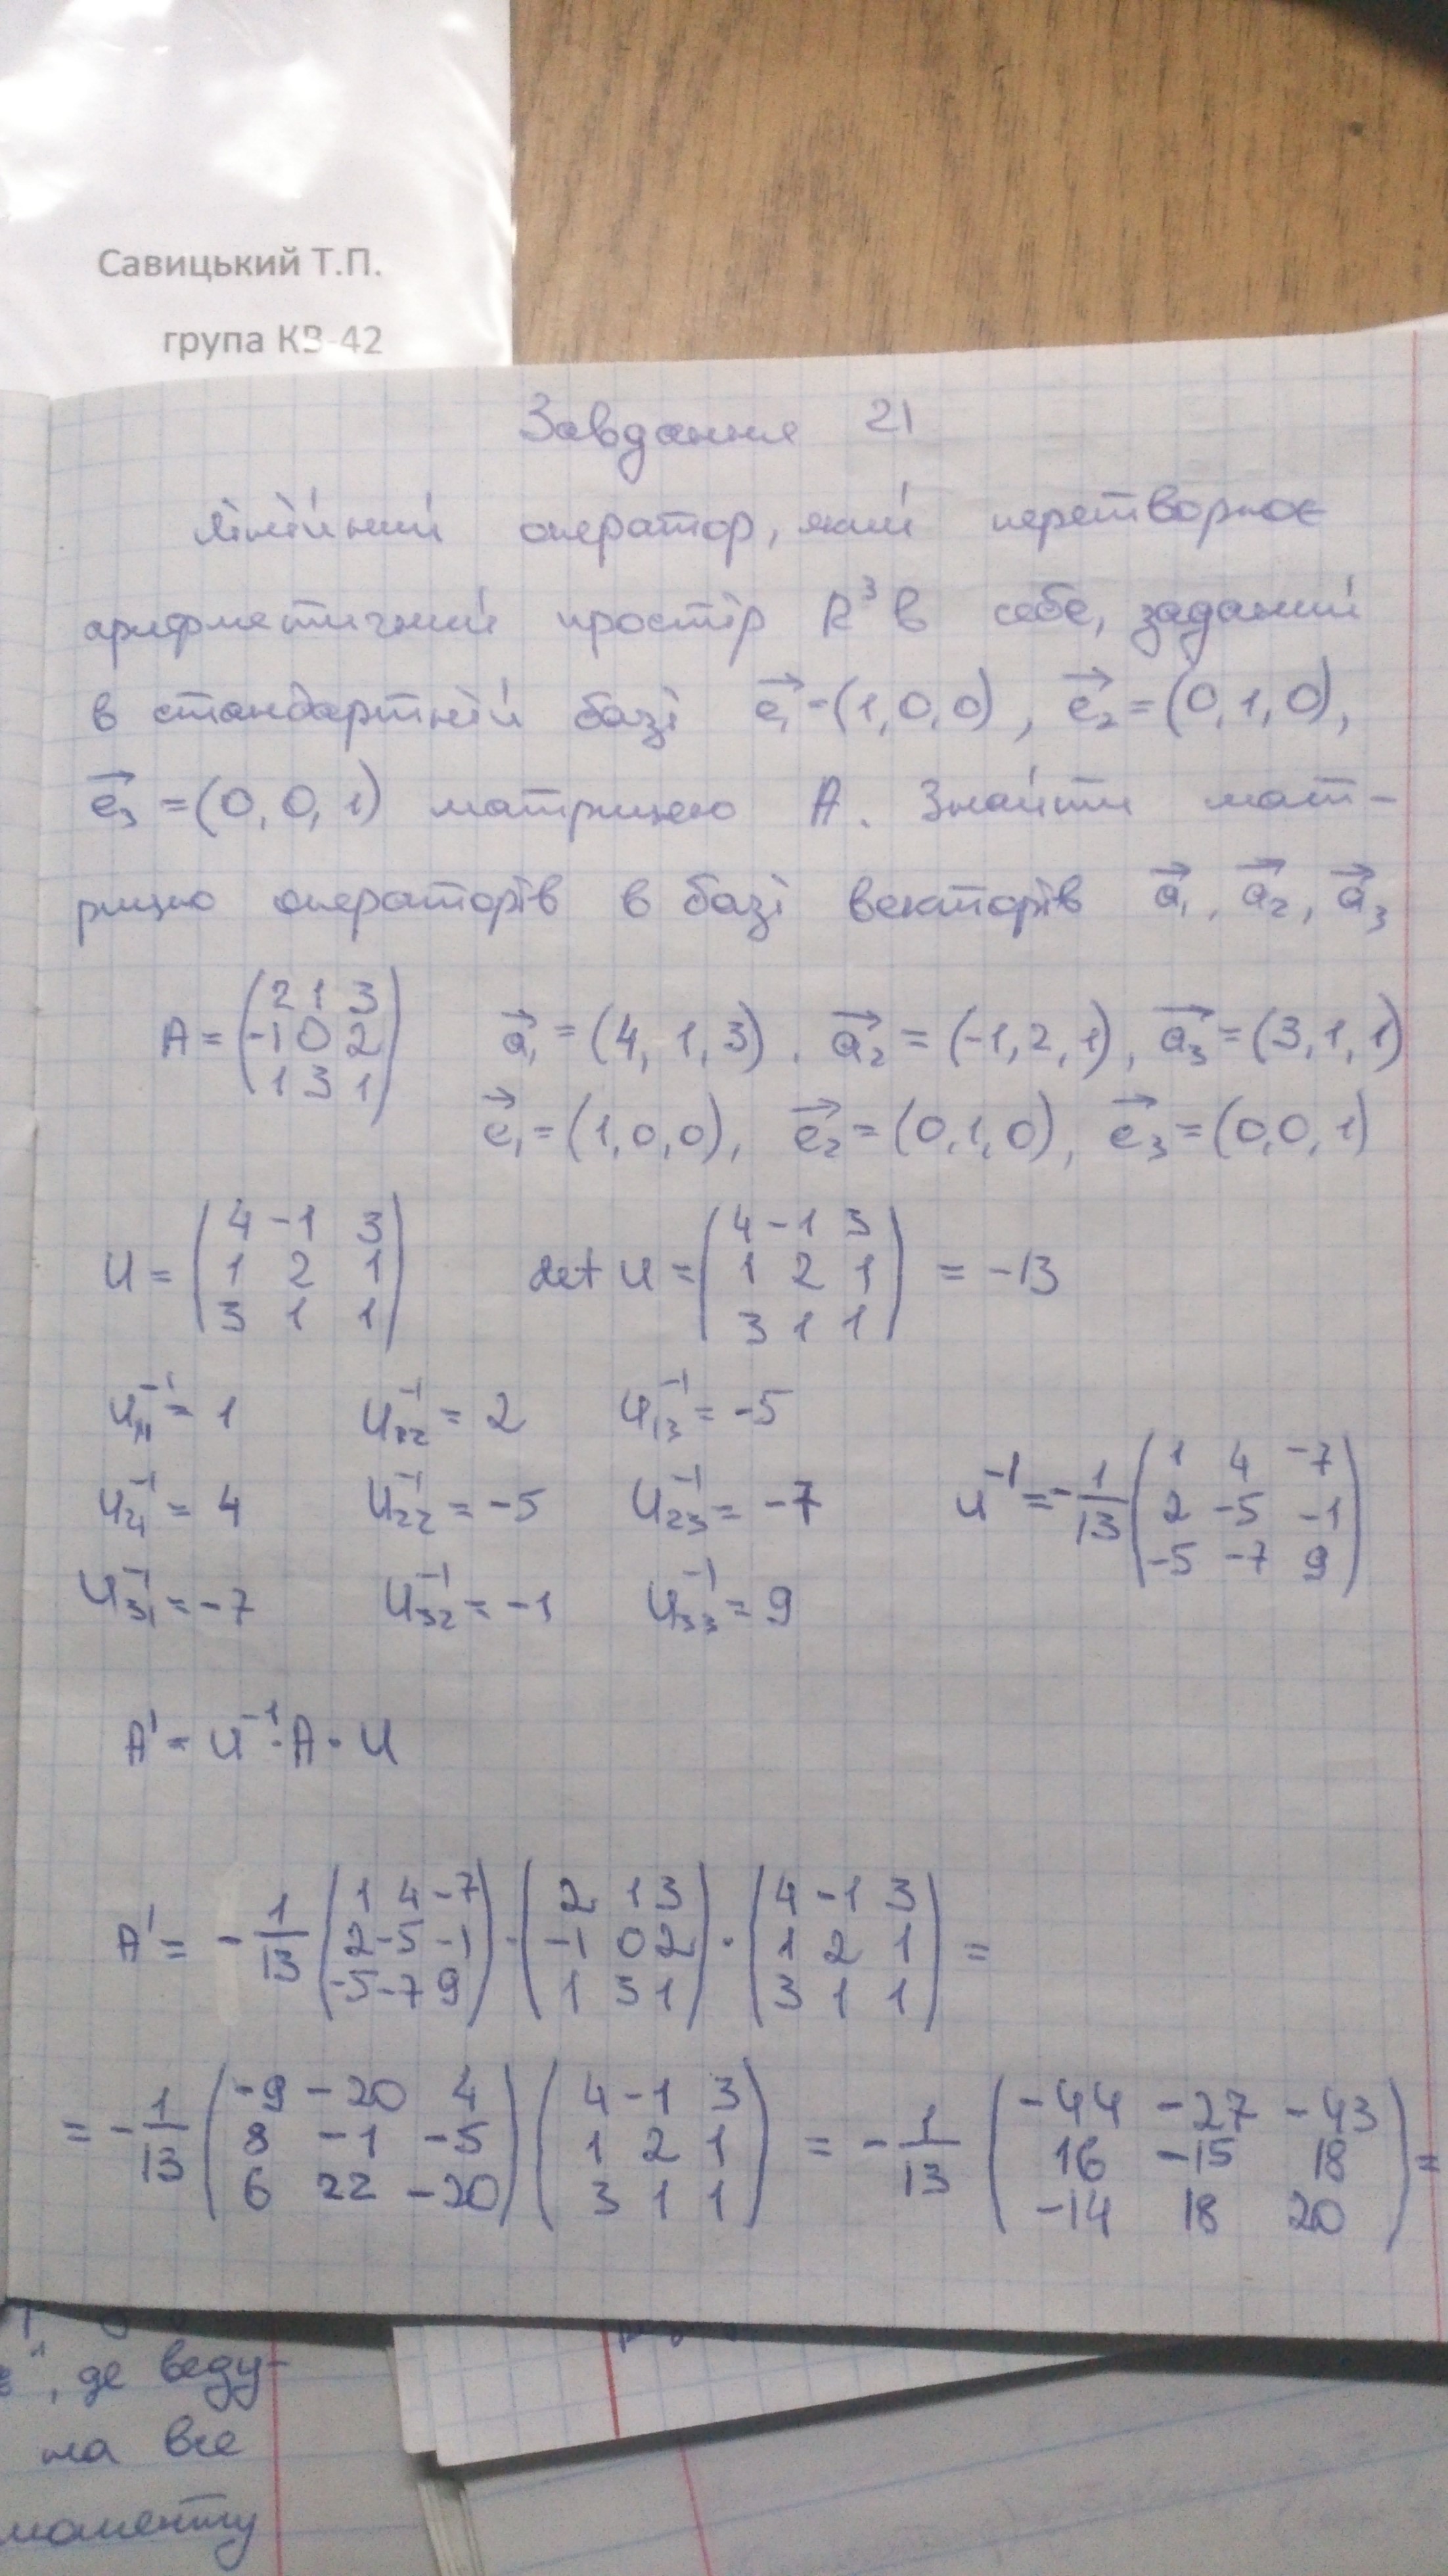 Савицький Т.П.
група КВ-42
Завдання 21
Лінійний оператор, який перетворює
арифметичний простір R³ в себе, заданий
в стандартній базі e₁=(1,0,0), e₂=(0,1,0),
e₃=(0,0,1) матрицею А. Знайти мат-
рицю операторів в базі векторів a₁, a₂, a₃
A = (2 1 3
-1 0 2
1 3 1)
a₁=(4,1,3), a₂=(-1,2,1), a₃=(3,1,1)
e₁=(1,0,0), e₂=(0,1,0), e₃=(0,0,1)
U = (4 -1 3
1 2 1
3 1 1)
det U = (4 -1 3
1 2 1
3 1 1) = -13
U₁₁⁻¹=1 U₁₂⁻¹=2 U₁₃⁻¹=-5
U₂₁⁻¹=4 U₂₂⁻¹=-5 U₂₃⁻¹=-7
U₃₁⁻¹=-7 U₃₂⁻¹=-1 U₃₃⁻¹=9
U⁻¹=-1/13 (1 4 -7
2 -5 -1
-5 -7 9)
A' = U⁻¹·A·U
A' = -1/13 (1 4 -7
2 -5 -1
-5 -7 9) · (2 1 3
-1 0 2
1 3 1) · (4 -1 3
1 2 1
3 1 1) =
= -1/13 (-9 -20 4
8 -1 -5
6 22 -20) (4 -1 3
1 2 1
3 1 1) = -1/13 (-44 -27 -43
16 -15 18
-14 18 20) =
", де веду-
на все
моменту